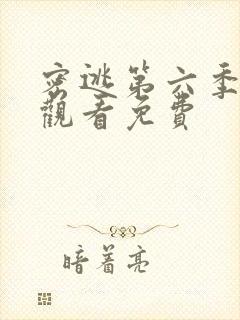 密逃第六季
觀看免費
暗着亮